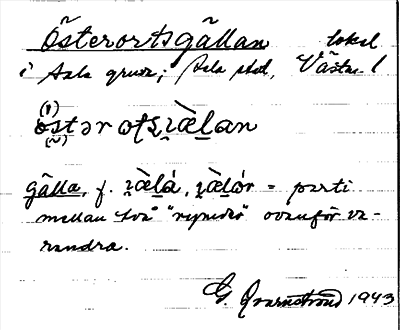 Österortsgällan lokal
i Sala gruva; Sala stad, Västm.l
(ı)
östər oʈʂ ı̯æ̀l̯an
(~)
gälla, f. ı̯æ̀l̯á, ı̯æ̀l̯ór = parti
mellan två "rymder" ovanför va-
randra.
G. Kvarnström 1943